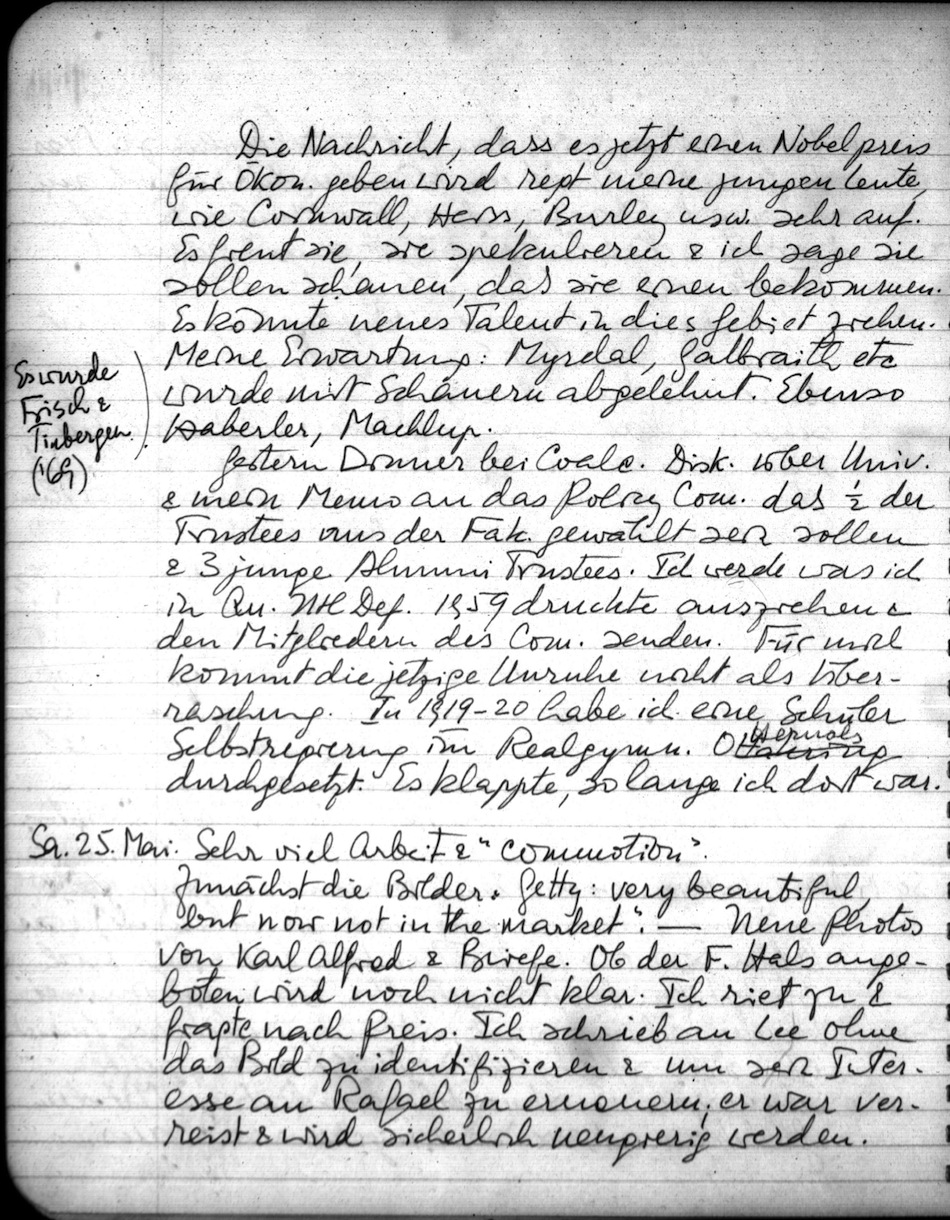 Die Nachricht, dass es jetzt einen Nobelpreis
für Ökon. geben wird regt meine jungen Leute,
wie Cornwall, Heiss, Burley usw. sehr auf.
Es freut sie, sie spekulieren & ich sage sie
sollen schauen, das sie einen bekommen.
Es könnte neues Talent in dies Gebiet ziehen.
Meine Erwartung: Myrdal, Galbraith etc
wurde mit Schauern abgelehnt. Ebenso
Haberler, Machlup.
Es wurde
Frisch &
Tinbergen.
('69)
Gestern Dinner bei Coale. Disk. über Univ.
& mein Memo an das Policy Com. das ½ der
Trustees aus der Fak. gewählt sein sollen
& 3 junge Alumni Trustees. Ich werde was ich
in Qu. Ntl Def. 1959 druckte ausziehen &
den Mitgliedern des Com. senden. Für mich
kommt die jetzige Unruhe nicht als Über-
raschung. In 1919-20 habe ich eine Schüler
Selbstregierung im Realgymn. Ottakring Hernals
durchgesetzt. Es klappte, so lange ich dort war.
Sa. 25. Mai. Sehr viel Arbeit & "commotion".
Zunächst die Bilder. Getty: very beautiful,
but now not in the market". — Neue Photos
von Karl Alfred & Briefe. Ob der F. Hals ange-
boten wird noch nicht klar. Ich riet zu &
fragte nach Preis. Ich schrieb an Lee ohne
das Bild zu identifizieren & um sein Inter-
esse an Rafael zu erneuern; er war ver-
reist & wird sicherlich neugierig werden.